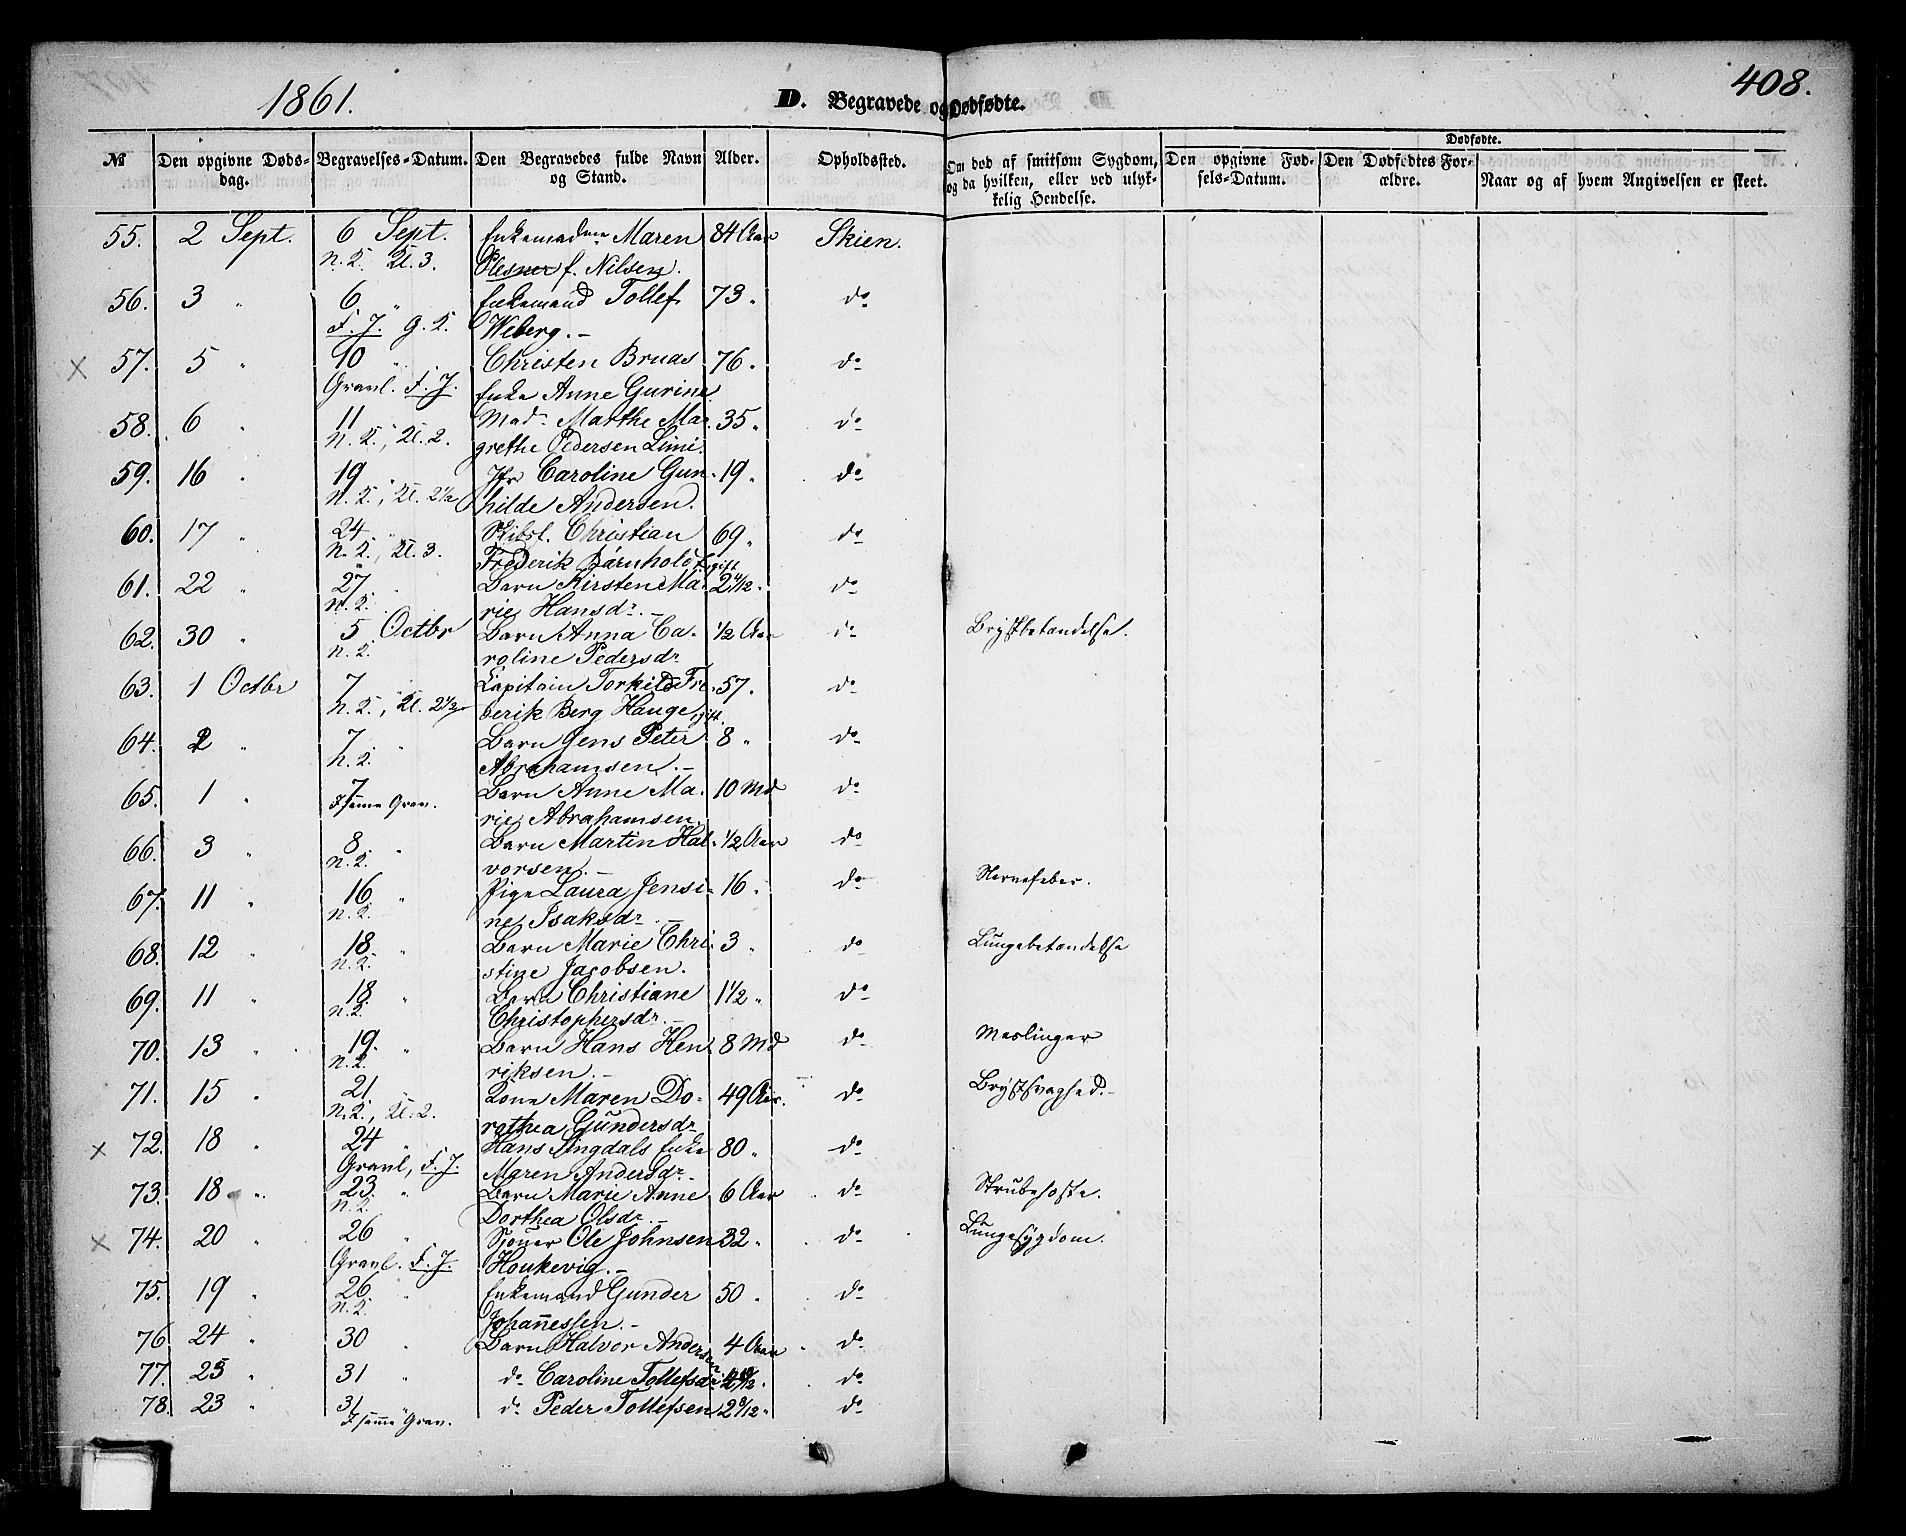 1861.
D. Begravede og Dødfødte.
408.
№
Den opgivne Døds-dag.
Begravelses-Datum.
Den Begravedes fulde Navn og Stand.
Alder.
Opholdssted.
Om død af smitsom Sygdom, og da hvilken, eller ved ulyk-kelig Hendelse.
Dødfødte.
Den opgivne Fød-sels-Datum.
Den Dødfødtes For-ældre.
Naar og af hvem Angivelsen er skeet.
55. 2 Sept. 6 Sept. Enkemadme Maren 84 Aar Skien.
n. K. Kl. 3. Plesner f. Nilsen.
56. 3 " 6 " Enkemand Tollef 73 " do
F. J. g. K. Weberg.—
57. 5 " 10 " Christen Bruas 76 " do
Gravl. F. J. Enke Anne Gurine
58. 6 " 11 Mad. Marthe Ma- 35 " do
n. K., Kl. 2. grethe Pedersen Limi.
59. 16 " 19 " Jfr Caroline Gun- 19 " do
n. K., Kl. 2½ hilde Andersen.
60. 17 " 24 " Skibsl. Christian 69 " do
n. K., Kl. 3. Frederik Bárnholdt, gift
61. 22 " 27 " Barn Kirsten Ma- 2 4/12 " do
n. K. rie Hansdr.—
62. 30 " 5 Octbr Barn Anna Ca- 1/2 Aar do Brystbetændelse.
n. K. roline Pedersdr
63. 1 Octbr 7 " Capitain Torkild Fre- 57. do
n. K., Kl. 2½ derik Berg Hauge, gift.
64. 2 " 7 " Barn Jens Peter 8 " do
n. K. Abrahamsen.—
65. 1 " 7 Barn Anne Ma- 10 Md do
I samme Grav. rie Abrahamsen.
66. 3 " 8 " Barn Martin Hal- 1/2 Aar do
n. K. vorsen.—
67. 11 " 16 " Pige Laura Jensi- 16 " do Nervefeber.
n. K. ne Isaksdr.—
68. 12 " 18 " Barn Marie Chri- 3 " do Lungebetændelse
n. K. stine Jacobsen.
69. 11 " 18 " Barn Christiane 1 1/2 " do
n. K. Christophersdr.—
70. 13 " 19 " Barn Hans Hen- 8 Md do Meslinger
n. K. riksen.—
71. 15 " 21. Kone Maren Do- 49 Aar. do Brystsvaghed.—
n. K., Kl. 2. rothea Gundersdr
72. 18 " 24 " Hans Lingdals Enke 80 " do
Gravl, F. J. Maren Andersdr.
73. 18 " 23 " Barn Marie Anne 6 Aar do Strubehoste.
n. K. Dorthea Olsdr.—
74. 20 " 26 " Sjouer Ole Johnsen 32 " do Lungesygdom.
Gravl. F. J. Houkevig.—
75. 19 " 26 " Enkemand Gunder 50 " do
n. K. Johannessen.—
76 24 " 30 " Barn Halvor Andersen 4 Aar do
77. 25 " 31 " do Caroline Tollefsdr do
78. 23 " 31 " do Peder Tollefsen 2 8/12 " do
I samme Grav.